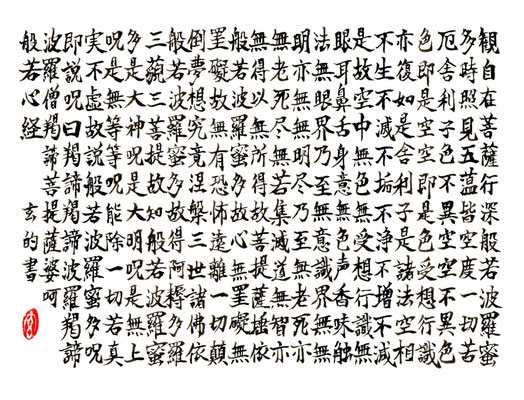 観自在菩薩行深般若波羅蜜
多時照見五蘊皆空度一切苦
厄舎利子色不異空空不異色
色即是空空即是色受想行識
亦復如是舎利子是諸法空相
不生不滅不垢不浄不増不減
是故空中無色無受想行識無
眼耳鼻舌身意無色声香味触
法無眼界乃至無意識界無無
明亦無無明尽乃至無老死亦
無老死尽無苦集滅道無智亦
無得以無所得故菩提薩埵依
般若波羅蜜多故心無罣礙無
罣礙故無有恐怖遠離一切顛
倒夢想究竟涅槃三世諸佛依
般若波羅蜜多故得阿耨多羅
三藐三菩提故知般若波羅蜜
多是大神呪是大明呪是無上
呪是無等等呪能除一切苦真
実不虚故説般若波羅蜜多呪
即説呪曰羯諦羯諦波羅羯諦
波羅僧羯諦菩提薩婆呵
般若心経 玄的書